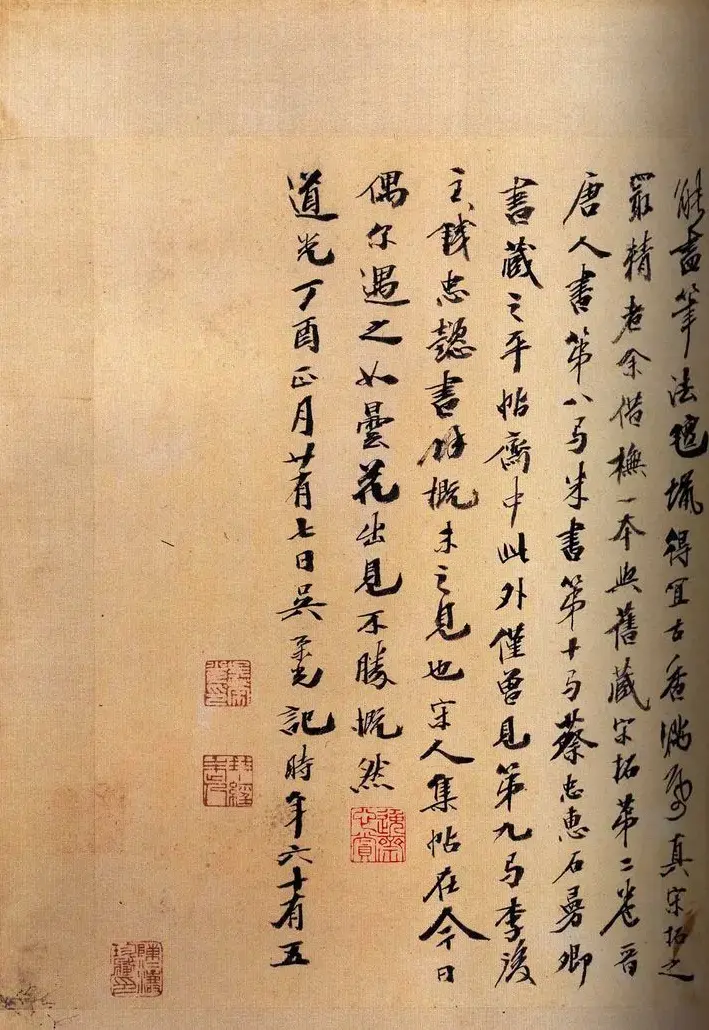 能書筆法得宜古香真宋拓之
最精者余借橅一本與舊藏宋拓第二卷晉
唐人書第八弓米書第十弓蔡忠惠石曼卿
書藏之平帖齋中此外僅曾見第九弓李後
主錢忠懿書餘概未之見也宋人集帖在今日
偶尔遇之如曇花出見不勝慨然
道光丁酉正月廿有七日吳榮光記時年六十有五